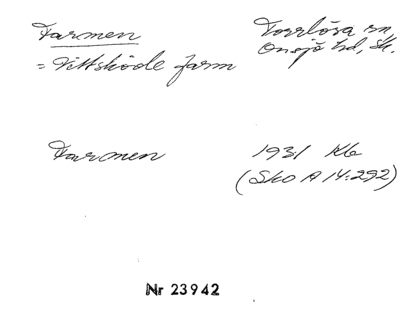 Farmen
Torrlösa sn
Onsjö hd, Sk.
= Vittsköde farm
Farmen
1931 Kb
(SkO A 14:292)
Nr 23942